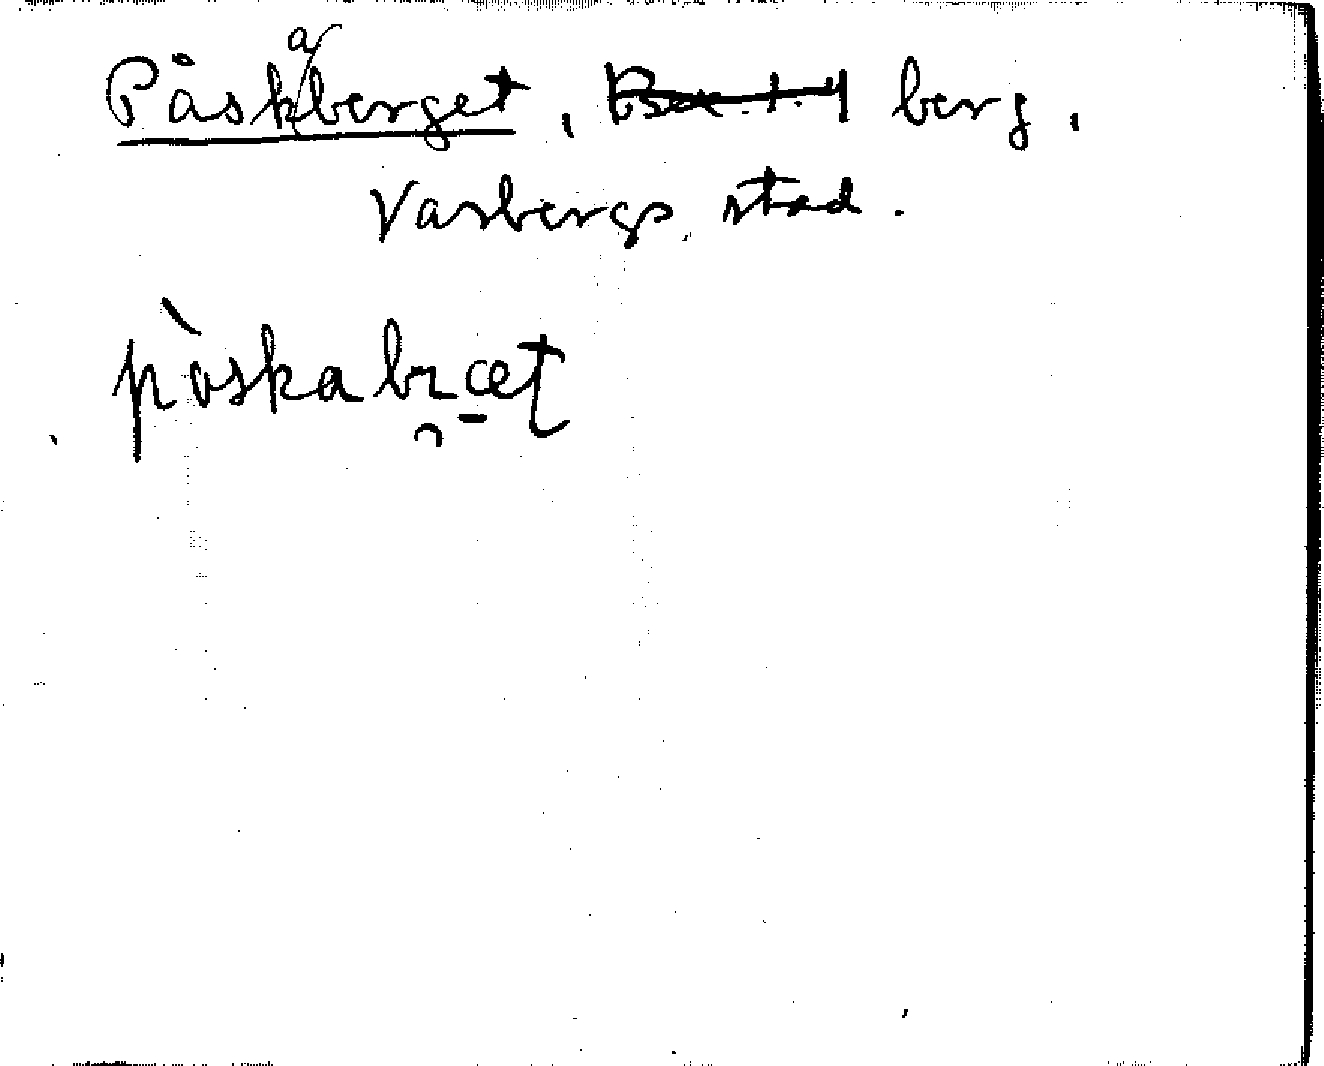 Påskaberget, berg,
Varbergs stad.
pòskabræt